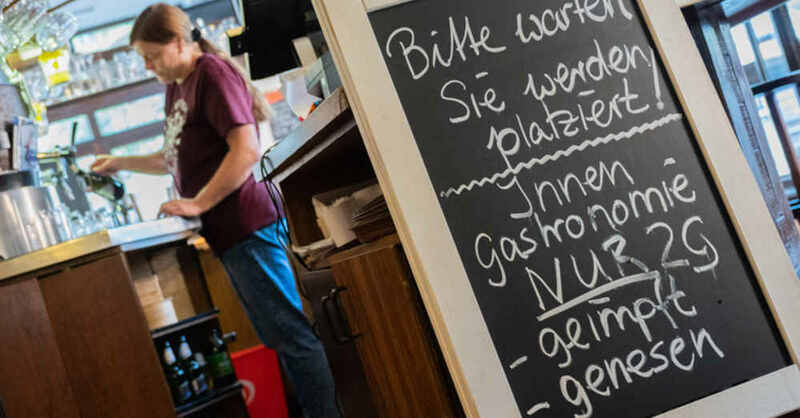 Bitte warten
Sie werden
platziert!
Innen
gastronomie
NUR 2G
- geimpft
- genesen